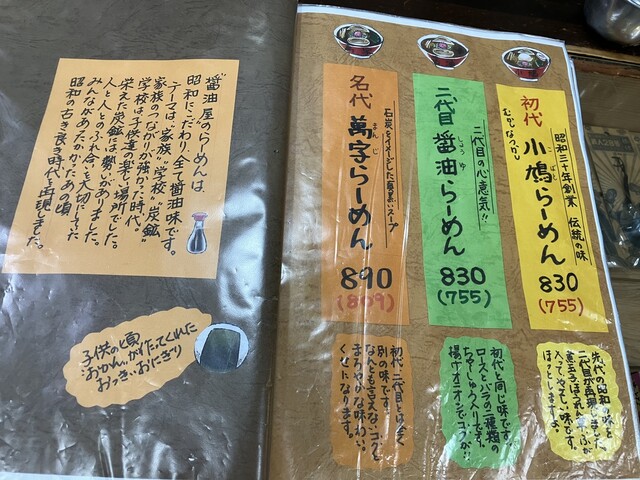 初代
むじなつかし
小鳩らーめん
こばと
昭和三十年創業 伝統の味
830
(755)
先代の昭和の味を
二代目が再現しました。
ほっとしますよ。
二代目
醤油らーめん
しょうゆ
二代目の心意気!!
830
(755)
初代と同じ味です。
ロースとバラの二種類の
ちゃーしゅう入りです。
揚げオニオンでコクが
名代
萬字らーめん
まんじ
石炭をイメージした真黒いスープ
890
(809)
初代、二代目とは全く
別の味です。
なんとも言えないコクと
まろやかな味わい。
くせになります。
醤油屋のらーめんは、
昭和にこだわり、全て醤油味です。
テーマは、"家族" "学校" "炭鉱"
家族のつながりが強かった時代。
学校は子供達の楽しい場所でした。
栄えた炭鉱には勢いがありました。
人と人とのふれ合いを大切にし
みんながあたたかかったあの頃
昭和の古き良き時代を再現しました。
子供の頃
おかんがたててくれた
おっきいおにぎり